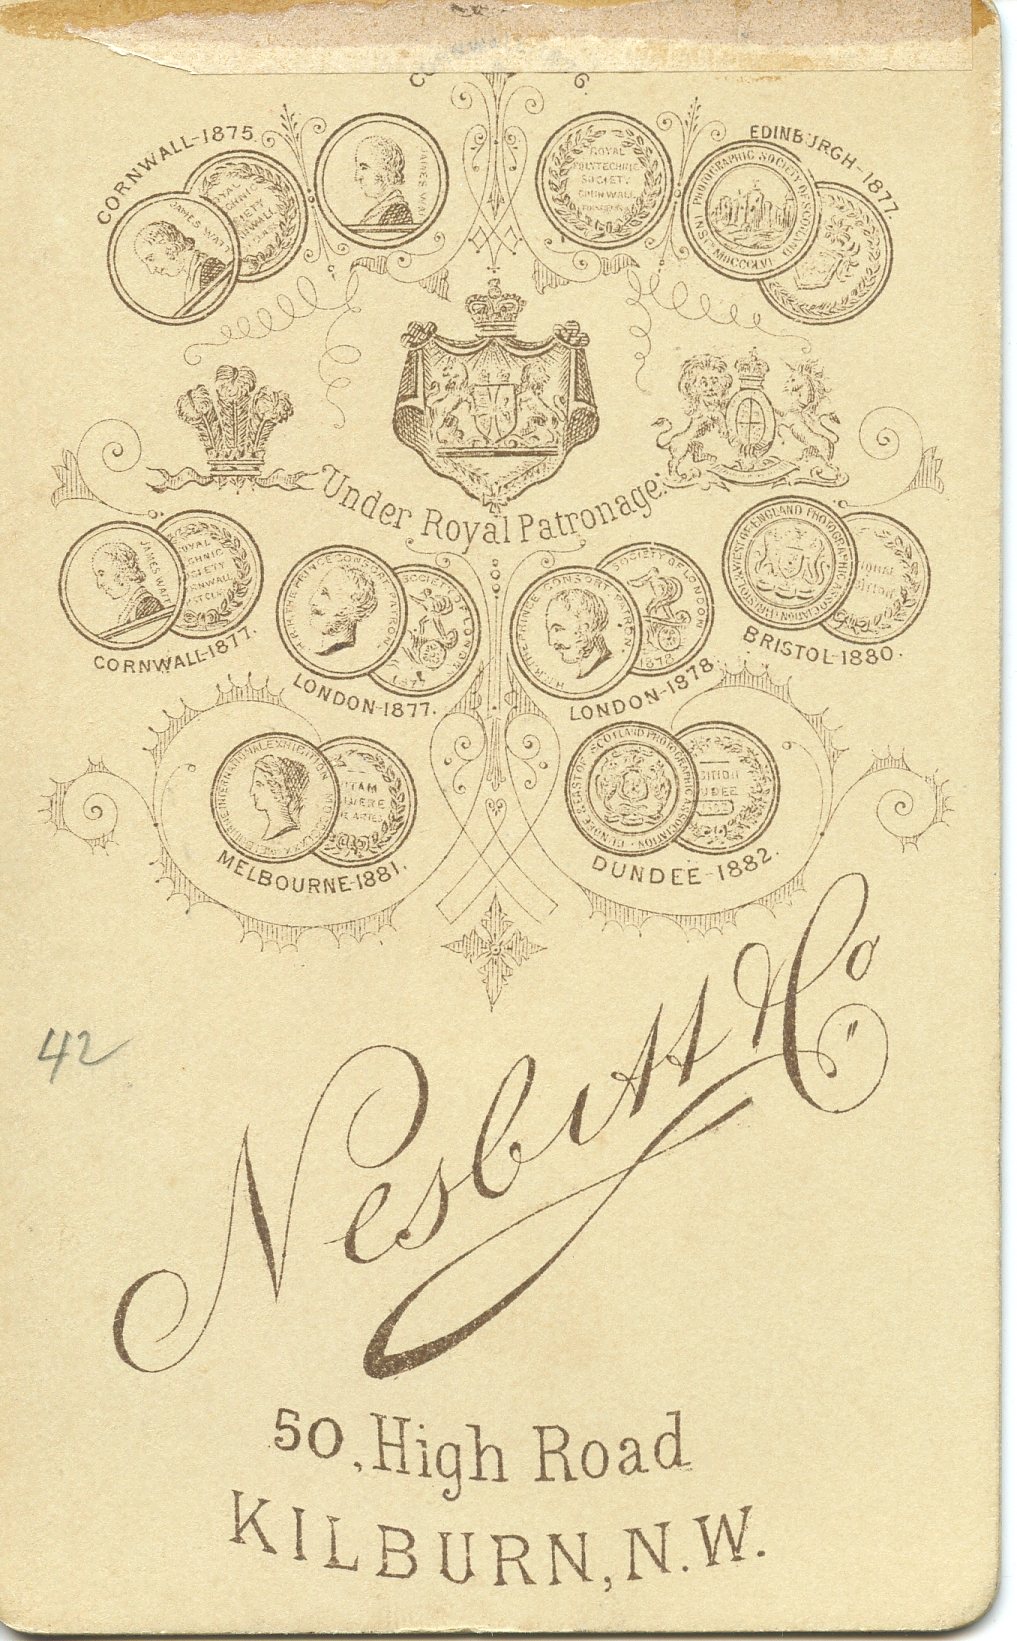 CORNWALL-1876.
CORNWALL-1875.
EDINBURGH-1877
JAMES WATT
ROYAL
POLYTECHNIC
SOCIETY
CORNWALL
PHOTOGRAPHIC SOCIETY OF SCOTLAND
INST. MDCCCLVI
JAMES WATT
Under Royal Patronage.
JAMES WATT
CORNWALL-1877.
H.R.H. THE PRINCE CONSORT PATRON
SOCIETY OF LONDON
1877
LONDON-1877.
H.R.H. THE PRINCE CONSORT PATRON
SOCIETY OF LONDON
1878
LONDON-1878.
BRISTOL & WEST OF ENGLAND PHOTOGRAPHIC ASSOCIATION
BRISTOL-1880.
MELBOURNE INTERNATIONAL EXHIBITION
MELBOURNE-1881.
DUNDEE & EAST OF SCOTLAND PHOTOGRAPHIC ASSOCIATION
DUNDEE-1882.
42
Nesbitt & Co
50, High Road
KILBURN, N.W.